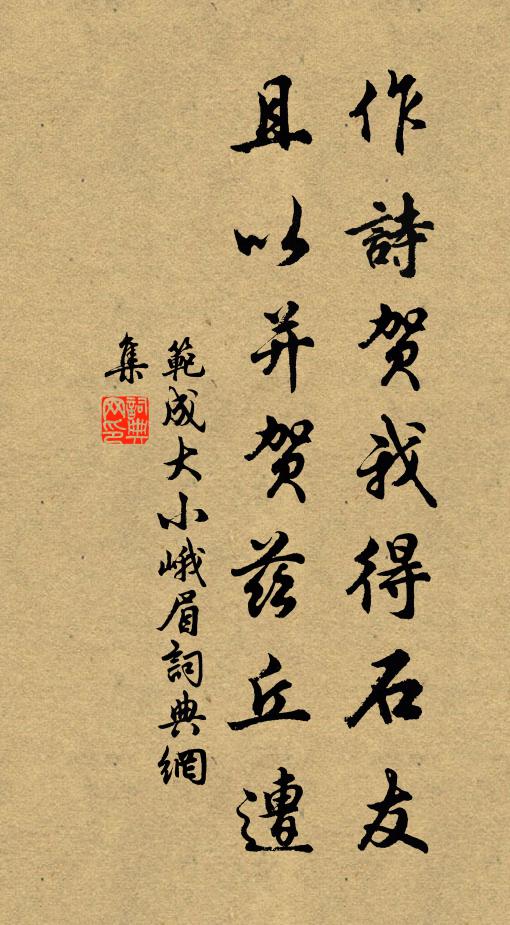 作詩賀我得石友
且以并賀茲丘遭
範成大小峨眉詞典網
集
詞典
网印